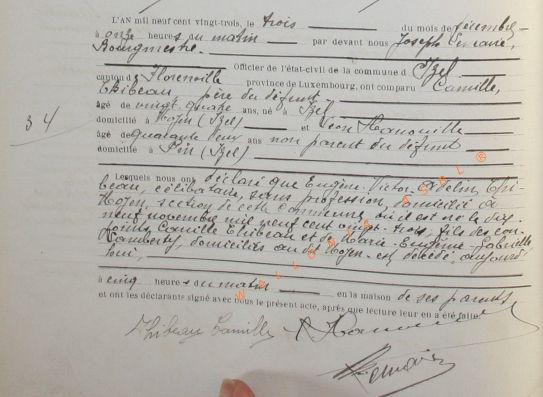 L'AN mil neuf cent vingt-trois, le trois du mois de décembre
à onze heures du matin par devant nous Joseph
Bourgmestre,
Officier de l'état-civil de la commune d'Izel
canton de Florenville province de Luxembourg, ont comparu Camille,
Thibeau père du défunt
âgé de vingt quatre ans, né à Izel
domicilié à Moyen (Izel) et Léon
34
âgé de quarante deux ans non parent du défunt
domicilié à Pin (Izel)
Lesquels nous ont déclaré que Eugène-Victor- Thi-
beau, célibataire, sans profession, domicilié à
Moyen, section de cette commune où il est né le dix-
neuf novembre mil neuf cent vingt-trois, fils des con-
joints Camille Thibeau et de Marie-Eugénie-Gabrielle
Lambert, domiciliés au dit Moyen est décédé, aujourd'
hui,
à cinq heures du matin en la maison de ses parents
et ont les déclarants signé avec nous le présent acte, après que lecture leur en a été faite.
Thibeau Camille